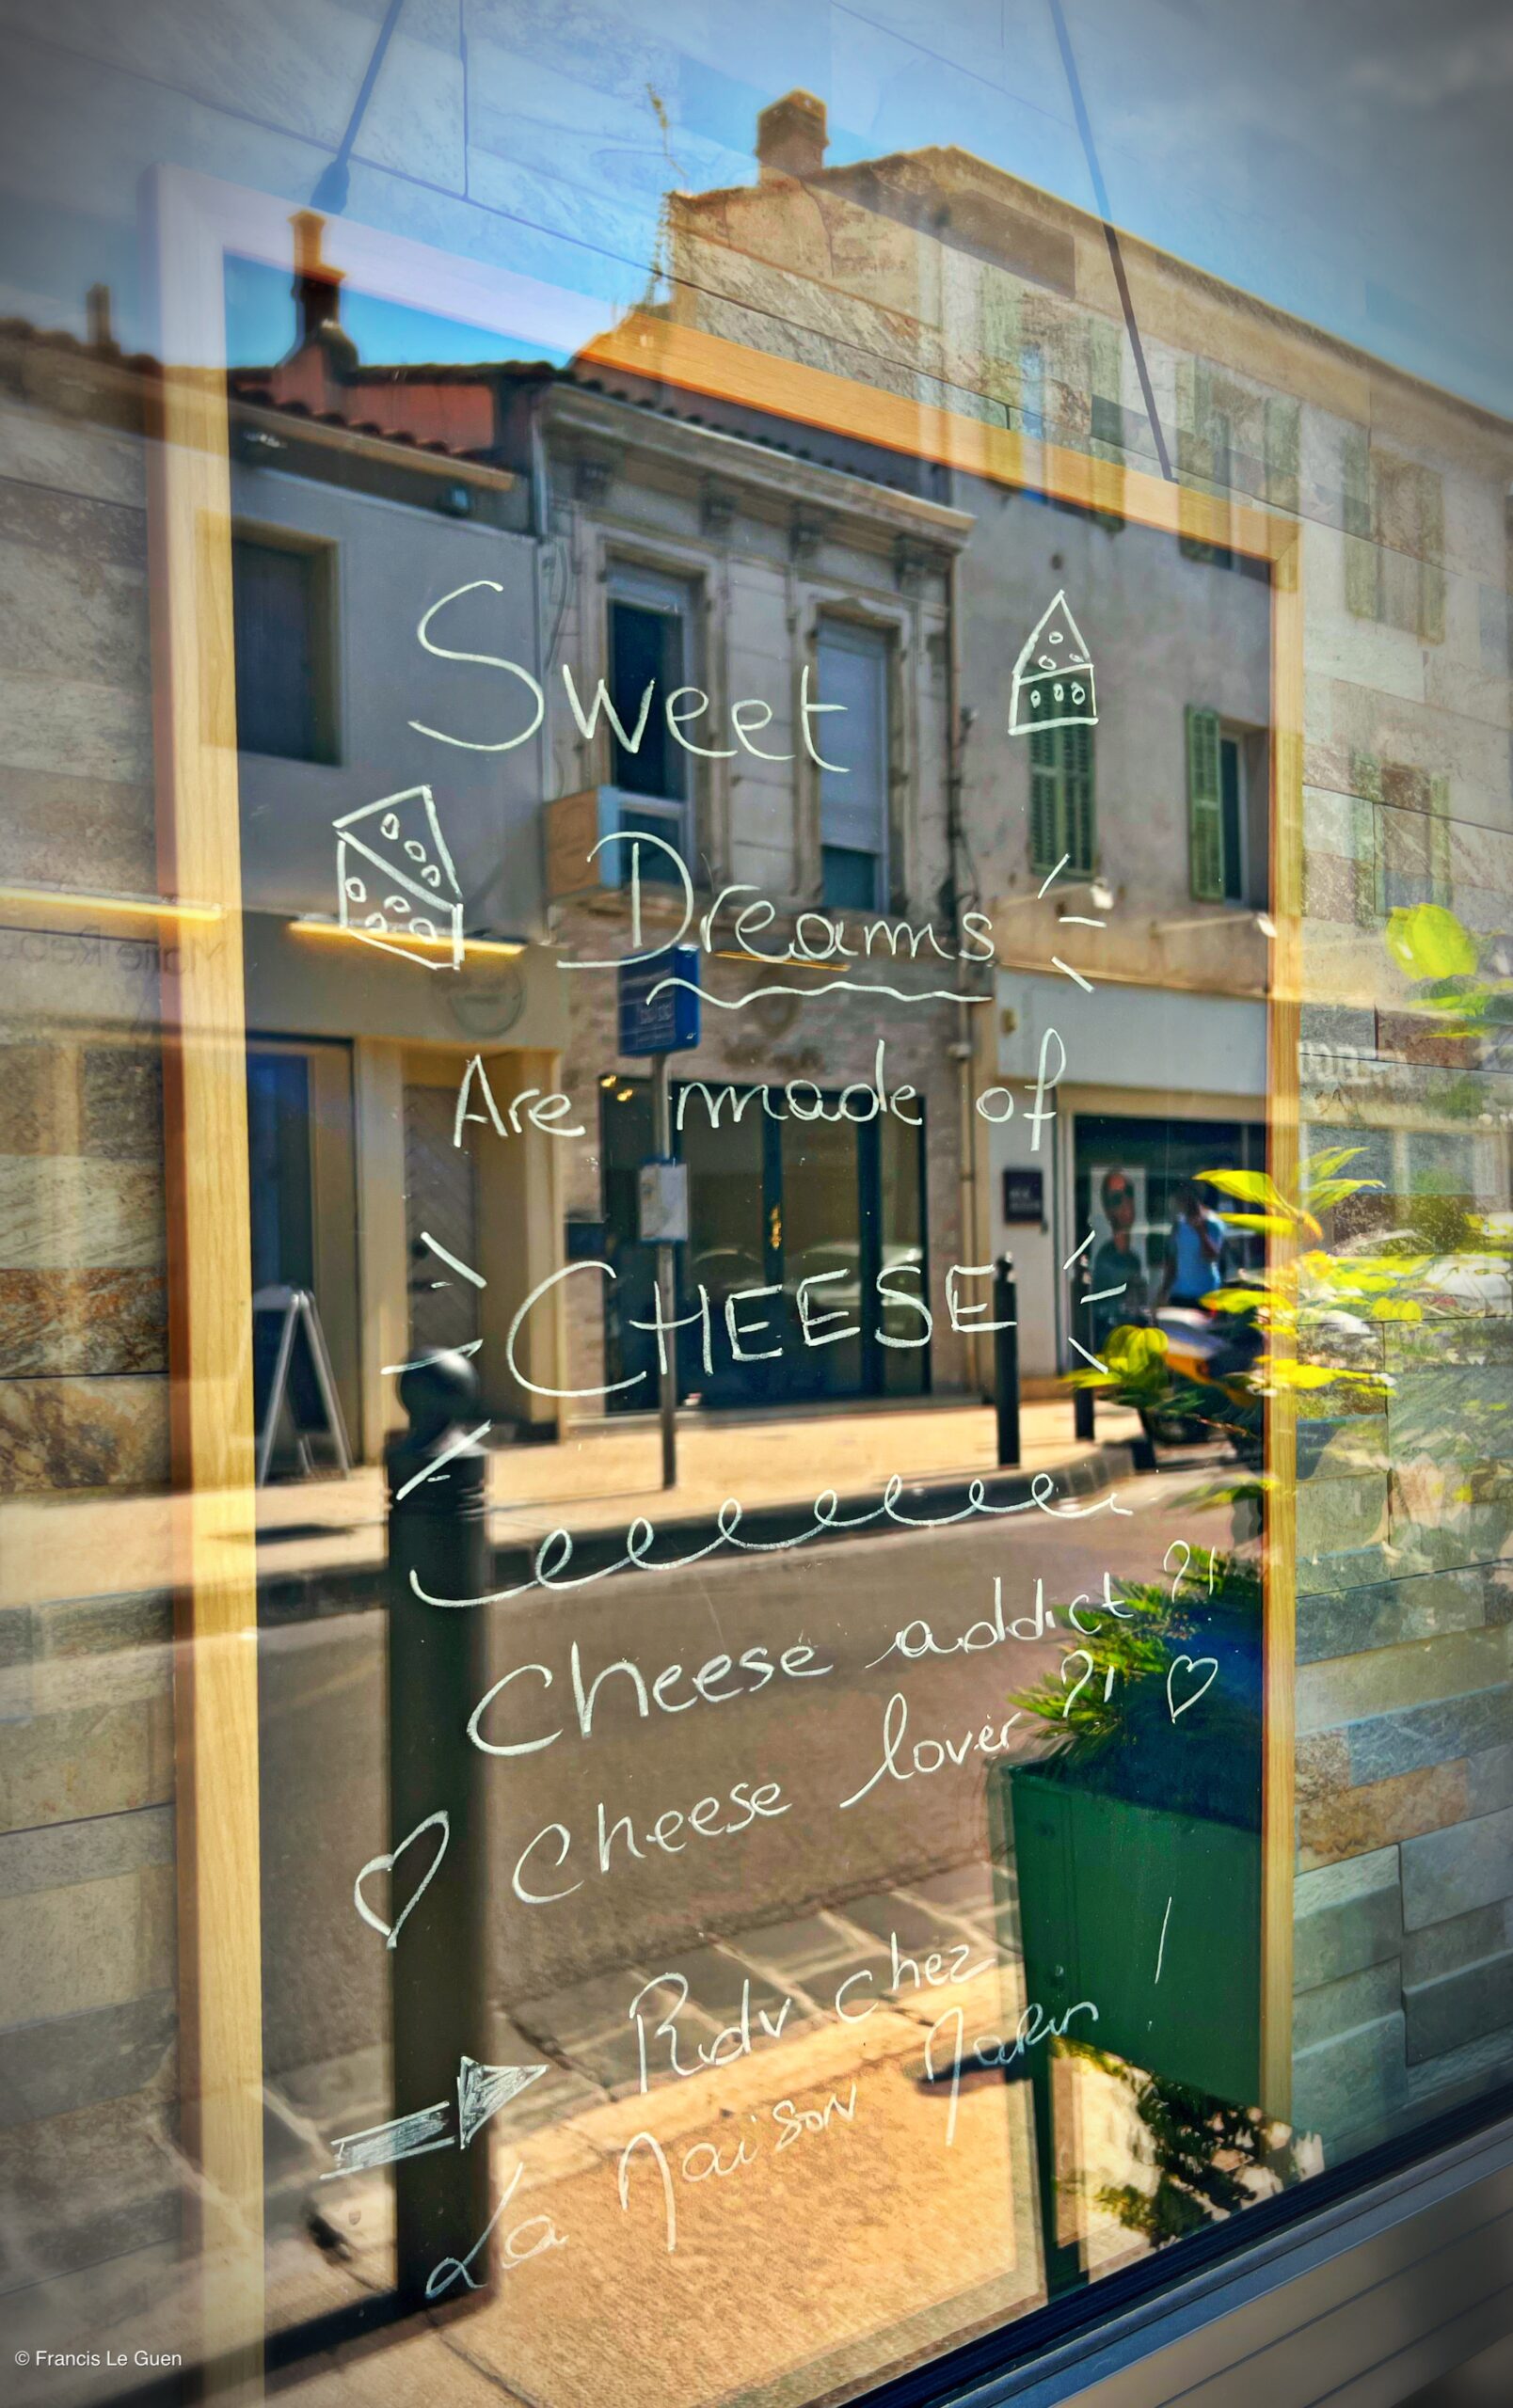 Sweet
Dreams
Are made of
CHEESE
Cheese addict ?!
Cheese lover ?!
Rdv chez
La Maison Marin
© Francis Le Guen